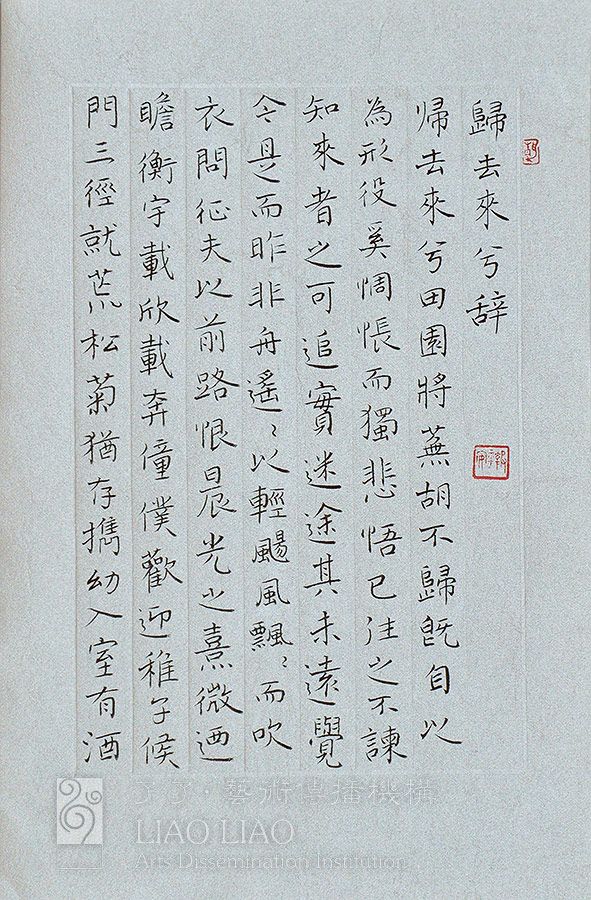 歸去來兮辞
帰去來兮田園將蕪胡不歸既自以
為形役奚惆悵而獨悲悟已往之不諫
知來者之可追實迷途其未遠覺
今是而昨非舟遙〻以輕颺風飄〻而吹
衣問征夫以前路恨晨光之熹微迺
瞻衡宇載欣載奔僮僕歡迎稚子候
門三徑就荒松菊猶存攜幼入室有酒
了了·藝術傳播機構
LIAO LIAO
Arts Dissemination Institution